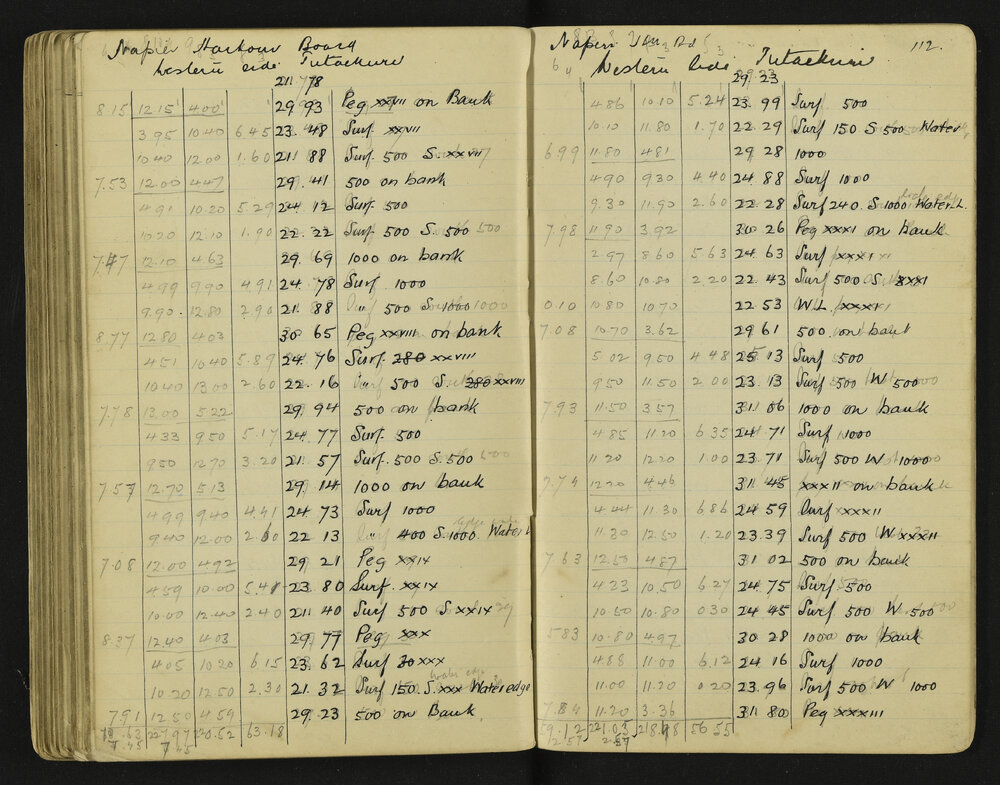 Napier Harbour Board
Western side Tutaekuri
21 78
8.15 12.15 4.00 29 93 Peg xxvii on Bank
3.95 10.40 6.45 23. 48 Surf. xxvii
10.40 12.00 1.60 21 88 Surf. 500 S. xxvii
7.53 12.00 4.47 29. 41 500 on bank
4.91 10.20 5.29 24. 12 Surf. 500
10.20 12.10 1.90 22. 22 Surf. 500 S. 500
7.47 12.10 4.63 29. 69 1000 on bank
4.99 9.90 4.91 24. 78 Surf. 1000
9.90 12.80 2.90 21. 88 Surf 500 S. 1000
8.77 12.80 4.03 30 65 Peg xxviii on bank
4.51 10.40 5.89 24. 76 Surf. 280 xxviii
10.40 13.00 2.60 22. 16 Surf 500 S. 280 xxviii
7.78 13.00 5.22 29. 94 500 on bank
4.33 9.50 5.17 24. 77 Surf. 500
9.50 12.70 3.20 21. 57 Surf. 500 S. 500
7.57 12.70 5.13 29. 14 1000 on bank
4.99 9.40 4.41 24. 73 Surf 1000
9.40 12.00 2.60 22 13 Surf 400 S. 1000 Water
7.08 12.00 4.92 29 21 Peg xxix
4.59 10.00 5.41 23. 80 Surf. xxix
10.00 12.40 2.40 21. 40 Surf 500 S xxix
8.37 12.40 4.03 29. 77 Peg xxx
4.05 10.20 6.15 23. 62 Surf 30 xxx
10.20 12.50 2.30 21. 32 Surf 150. S. xxx Water edge
7.91 12.50 4.59 29. 23 500 on Bank
63.18
Napier Bd 112.
Western Side Tutaekuri
29. 23
4.86 10.10 5.24 23. 99 Surf 500
10.10 11.80 1.70 22. 29 Surf 150 S. 500 Water
6.99 11.80 4.81 29 28 1000
4.90 9.30 4.40 24. 88 Surf 1000
9.30 11.90 2.60 22. 28 Surf 240. S. 1000 Water L.
7.98 11.90 3.92 30 26 Peg xxxi on bank
2.97 8.60 5.63 24. 63 Surf xxxi
8.60 10.80 2.20 22. 43 Surf 500 S xxxi
0.10 10.80 10.70 22 53 W.L. xxxi
7.08 10.70 3.62 29 61 500 on bank
5.02 9.50 4.48 25 13 Surf 500
9.50 11.50 2.00 23. 13 Surf 500 W 500
7.93 11.50 3.57 31 06 1000 on bank
4.85 11.20 6.35 24 71 Surf 1000
11.20 12.20 1.00 23. 71 Surf 500 W 1000
7.74 12.20 4.46 31 45 xxxii on bank
4.44 11.30 6.86 24 59 Surf xxxii
11.30 12.50 1.20 23. 39 Surf 500 W xxxii
7.63 12.50 4.87 31 02 500 on bank
4.23 10.50 6.27 24. 75 Surf. 500
10.50 10.80 0.30 24 45 Surf 500 W. 500
5.83 10.80 4.97 30 28 1000 on bank
4.88 11.00 6.12 24 16 Surf 1000
11.00 11.20 0.20 23. 96 Surf 500 W 1000
7.84 11.20 3.36 31 80 Peg xxxiii
59.12 221.05 218.48 56.55
2.57 2.57